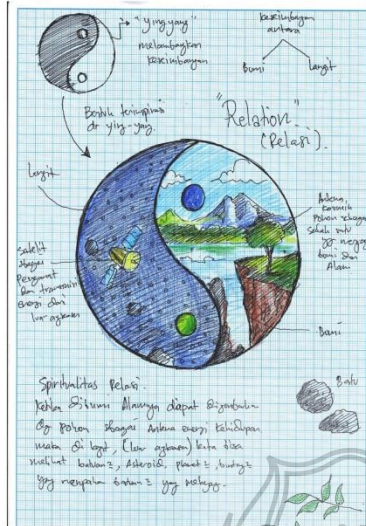 "Ying yang"
melambangkan
keseimbangan
keseimbangan
antara
Bumi
langit
Bentuk terinspirasi
dr ying-yang.
"Relation"
(Relasi).
Langit
satelit
sbagai
Pengamat
dan transmisi
energi dari
luar angkasa
Pohon sbagai
Salah satu
yg menjaga
bumi dan
Alam
Bumi
Spiritualitas Relasi.
Ketika di bumi Alamnya dapat digambarkan
dg pohon sbagai energi kehidupan
maka di langit, (luar angkasa) kita bisa
melihat batuan2, Asteroid, planet2, bintang2
yang merupakan batuan2 yang melayang.
Batu